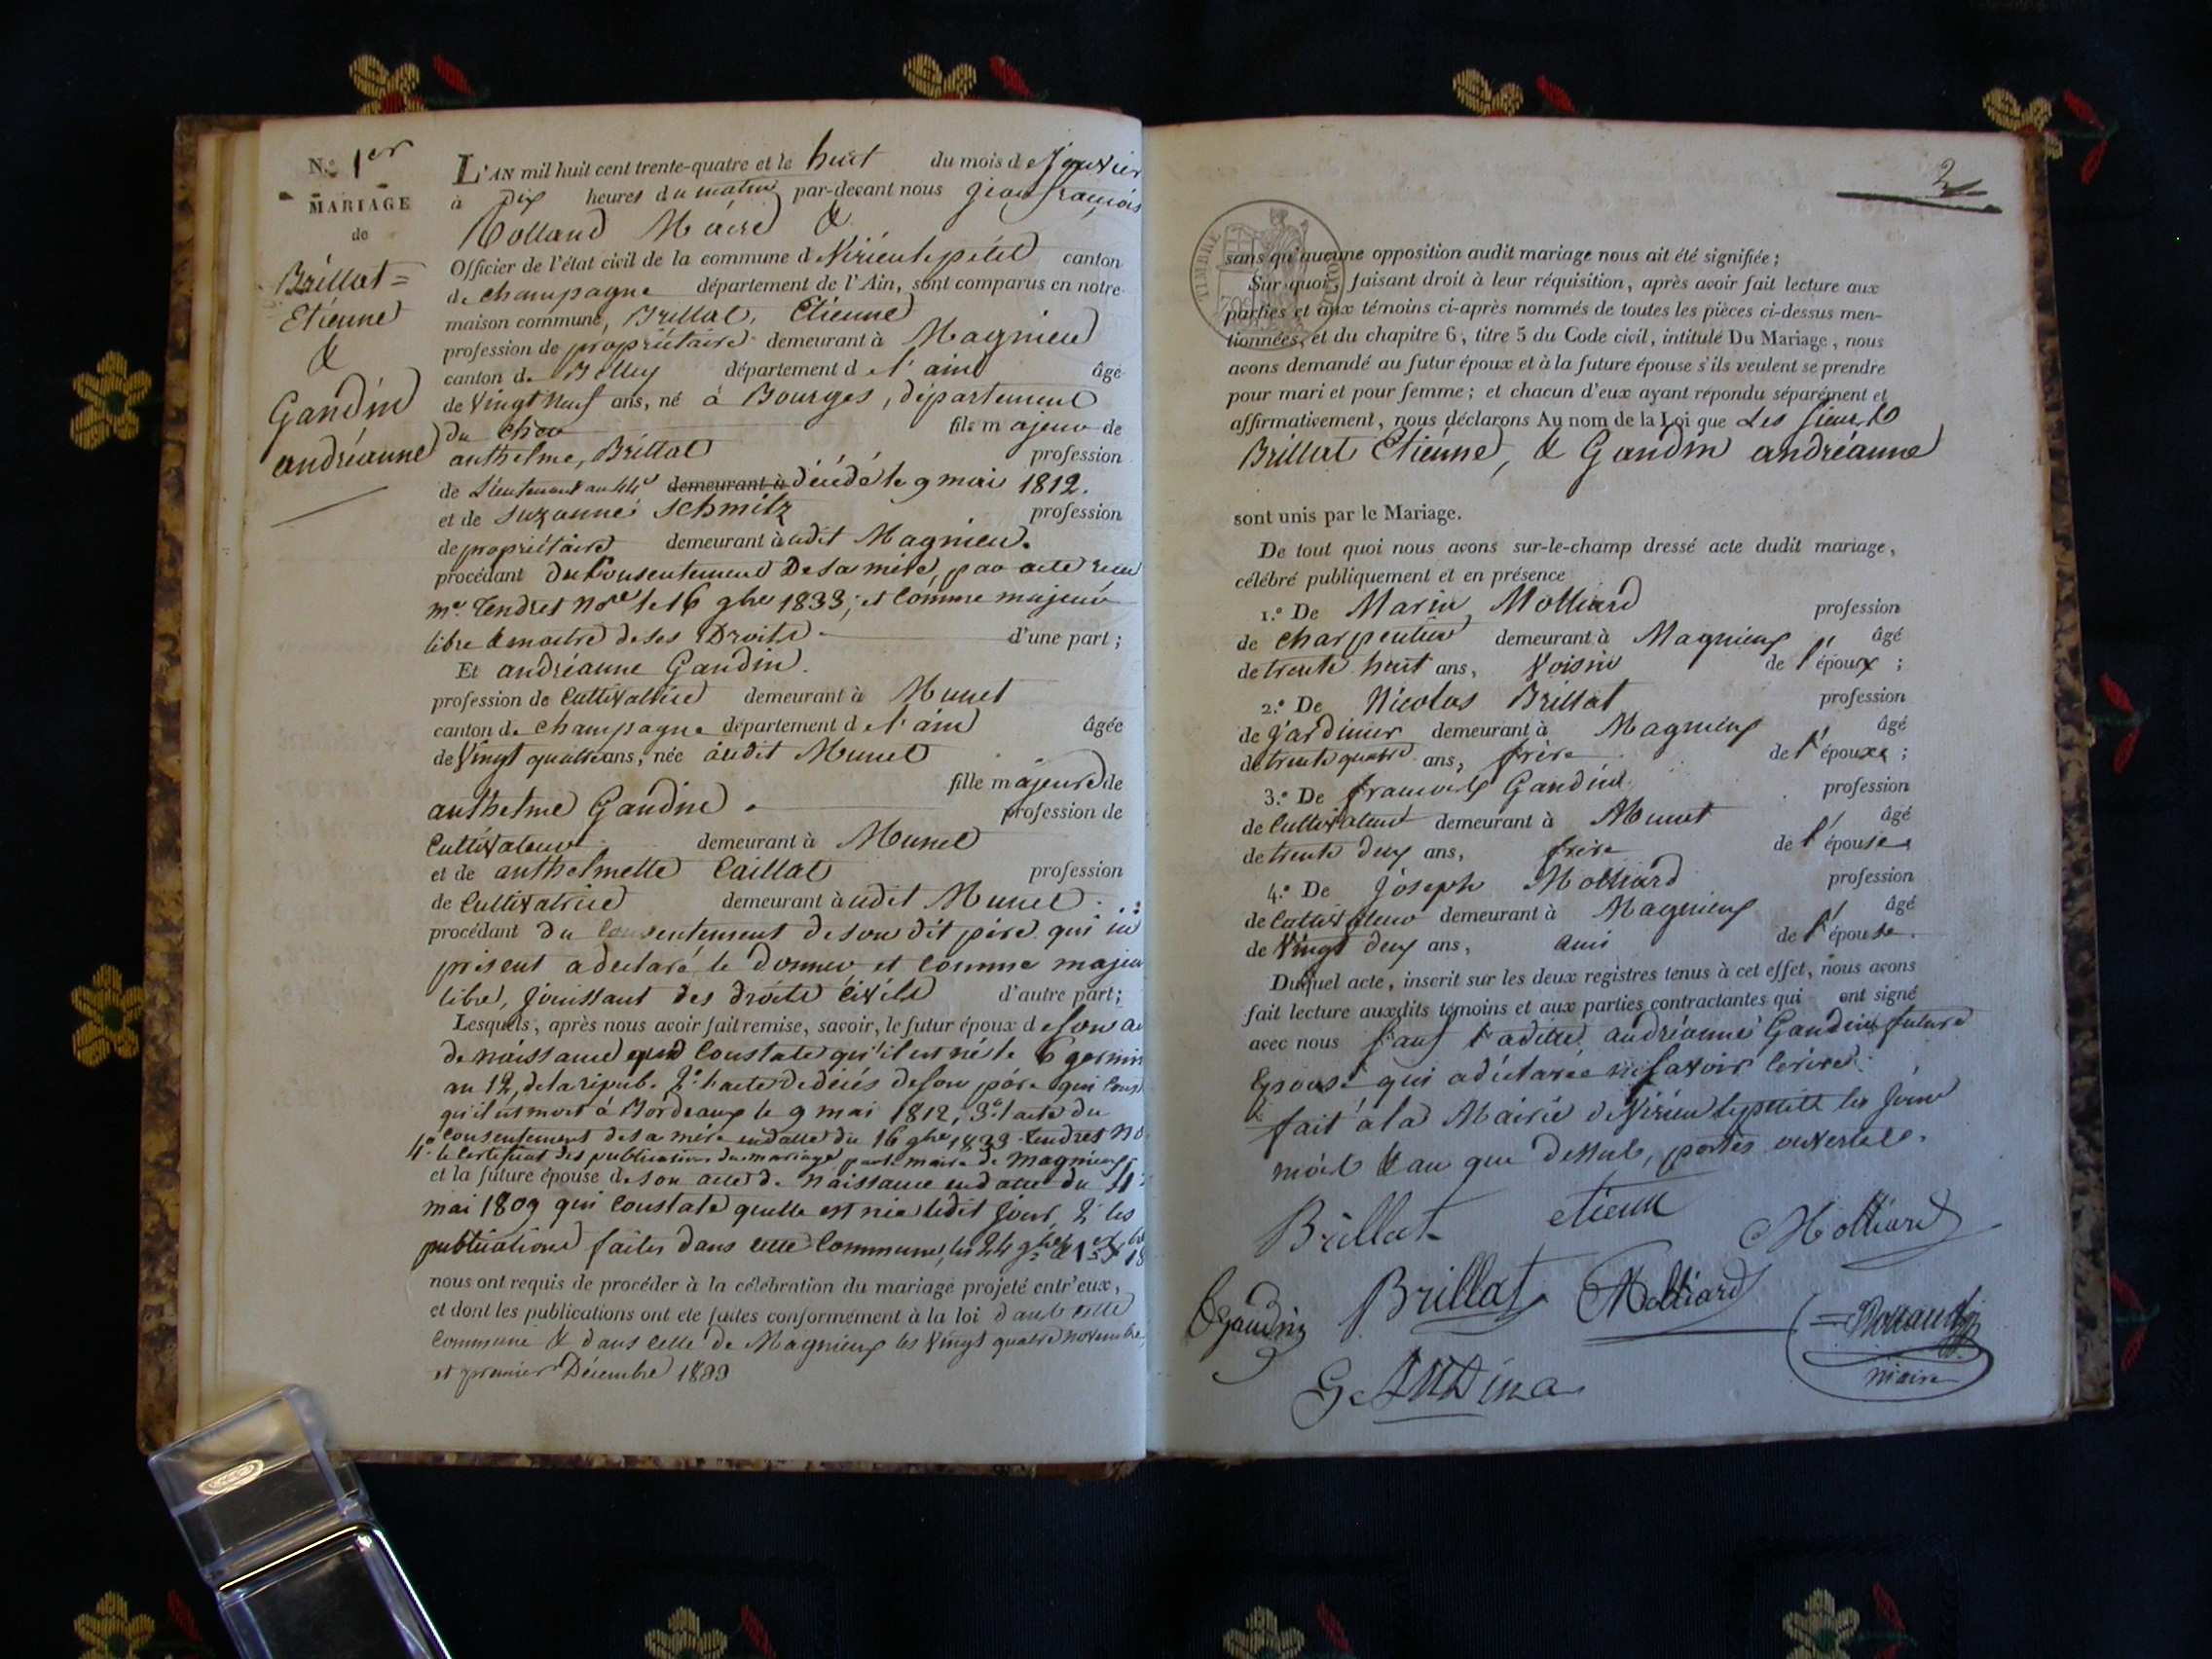 N.º 1er
MARIAGE
de
Brillat=
Etiénne
&
Gandin
andréanne
L'AN mil huit cent trente-quatre et le huit du mois de Janvier
à Dix heures du matin par-devant nous jean françois
Rolland Maire &
Officier de l'état civil de la commune d Virieu le petit canton
de Champagne département de l'Ain, sont comparus en notre
maison commune, Brillat, Etienne
profession de propriétaire demeurant à Magnieu
canton de Belley département de l'ain âgé
de Vingt neuf ans, né à Bourges, département
du Cher fils majeur de
anthelme, Brillat profession
de Lieutenant au 44e demeurant à décédé le 9 mai 1812.
et de Suzanne Schmitz profession
de propriétaire demeurant à udit Magnieu.
procédant du Consentement de sa mère, par acte recu
me. Tendret Nore le 16 9bre 1833; et comme majeur
libre & maitre de ses Droits d'une part;
Et andréanne Gandin.
profession de Cultivatrice demeurant à Munet
canton de Champagne département de l'ain âgée
de Vingt quatre ans, née audit Munet
fille majeure de
anthelme Gandin profession de
Cultivateur demeurant à Munet
et de anthelmette Caillat profession
de Cultivatrice demeurant à udit Munet.
procédant du Consentement de son dit père qui ici
présent a declaré le donner et comme majeu
libre, jouissant des droits Civils d'autre part;
Lesquels, après nous avoir fait remise, savoir, le futur époux de son ac
de naissance qui Constate qu'il est né le 6 germin
an 12, de la répub. 2º l'acte de décés de son pére qui Cons
qu'il est mort à Bordeaux le 9 mai 1812, 3º l'acte du
Consentement de sa mére en datte du 16 9bre 1833 Tendret No
4º le Certificat des publications du mariage par le maire de Magnieux
et la future épouse de son acte de naissance en datte du 11
mai 1809 qui Constate quelle est née ledit jour, 2º les
publications faites dans cette Commune, les 24 9bre & 1er Xbre 18
nous ont requis de procéder à la célébration du mariage projeté entr'eux,
et dont les publications ont été faites conformément à la loi dans cette
Commune & dans celle de Magnieux les vingt quatre novembre,
et premier Décembre 1833
2
TIMBRE ROYAL
sans qu'aucune opposition audit mariage nous ait été signifiée;
Sur quoi, faisant droit à leur réquisition, après avoir fait lecture aux
parties et aux témoins ci-après nommés de toutes les pièces ci-dessus men-
tionnées, et du chapitre 6, titre 5 du Code civil, intitulé Du Mariage, nous
avons demandé au futur époux et à la future épouse s'ils veulent se prendre
pour mari et pour femme; et chacun d'eux ayant répondu séparément et
affirmativement, nous déclarons Au nom de la Loi que Les sieurs
Brillat Etiénne, & Gandin andréanne
sont unis par le Mariage.
De tout quoi nous avons sur-le-champ dressé acte dudit mariage,
célébré publiquement et en présence
1.º De Marin Molliard profession
de Charpentier demeurant à Magnieux âgé
de trente huit ans, Voisin de l'époux;
2.º De Nicolas Brillat profession
de jardinier demeurant à Magnieux âgé
de trente quatre ans, frère de l'époux;
3.º De francois Gandin profession
de Cultivateur demeurant à Munet âgé
de trente deux ans, frère de l'épouse
4.º De Joseph Molliard profession
de Cultivateur demeurant à Magnieux âgé
de Vingt deux ans, ami de l'épouse.
Duquel acte, inscrit sur les deux registres tenus à cet effet, nous avons
fait lecture auxdits témoins et aux parties contractantes qui ont signé
avec nous sauf ladite andréanne Gandin future
Epouse qui a déclarée ne savoir ecrire.
fait à la Mairie de Virieu le petit les jour
mois & an que dessus, portes ouvertes.
Brillat etienne Molliard
Gandin Brillat Molliard Rolland
maire
GANDin